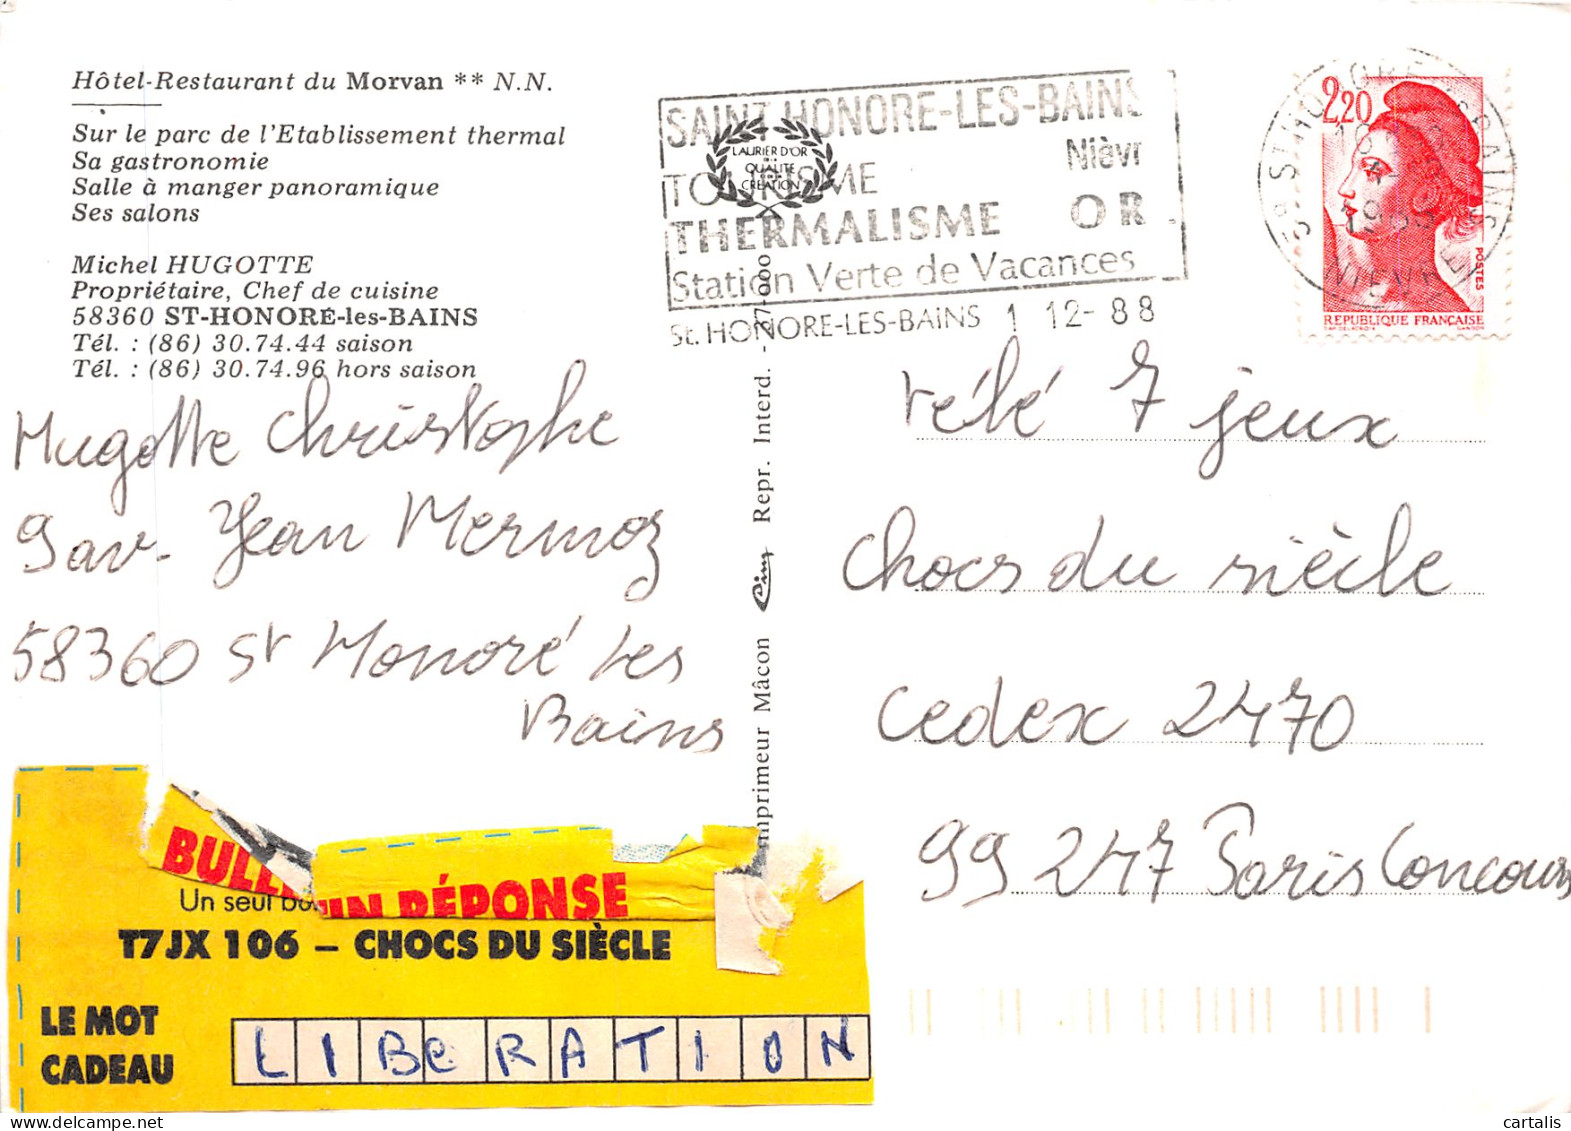 Hôtel-Restaurant du Morvan ** N.N.
Sur le parc de l'Etablissement thermal
Sa gastronomie
Salle à manger panoramique
Ses salons
Michel HUGOTTE
Propriétaire, Chef de cuisine
58360 ST-HONORÉ-les-BAINS
Tél. : (86) 30.74.44 saison
Tél. : (86) 30.74.96 hors saison
SAINT HONORE-LES-BAINS
Nièvr
TOURISME
THERMALISME OR
Station Verte de Vacances
St. HONORE-LES-BAINS 1 12-88
LAURIER D'OR
DE LA
QUALITÉ
CREATION
2,20
POSTES
REPUBLIQUE FRANÇAISE
NIEVRE
Hugotte Christophe
9 av. Jean Mermoz
58360 St Honoré les
Bains
Imprimeur Mâcon Cim Repr. Interd. - 27-000
télé 7 jeux
Chocs du siècle
Cedex 2470
99 247 Paris Concours
BULLE
TIN RÉPONSE
Un seul bu
T7JX 106 – CHOCS DU SIÈCLE
LE MOT
CADEAU
LIBERATION
cartalis